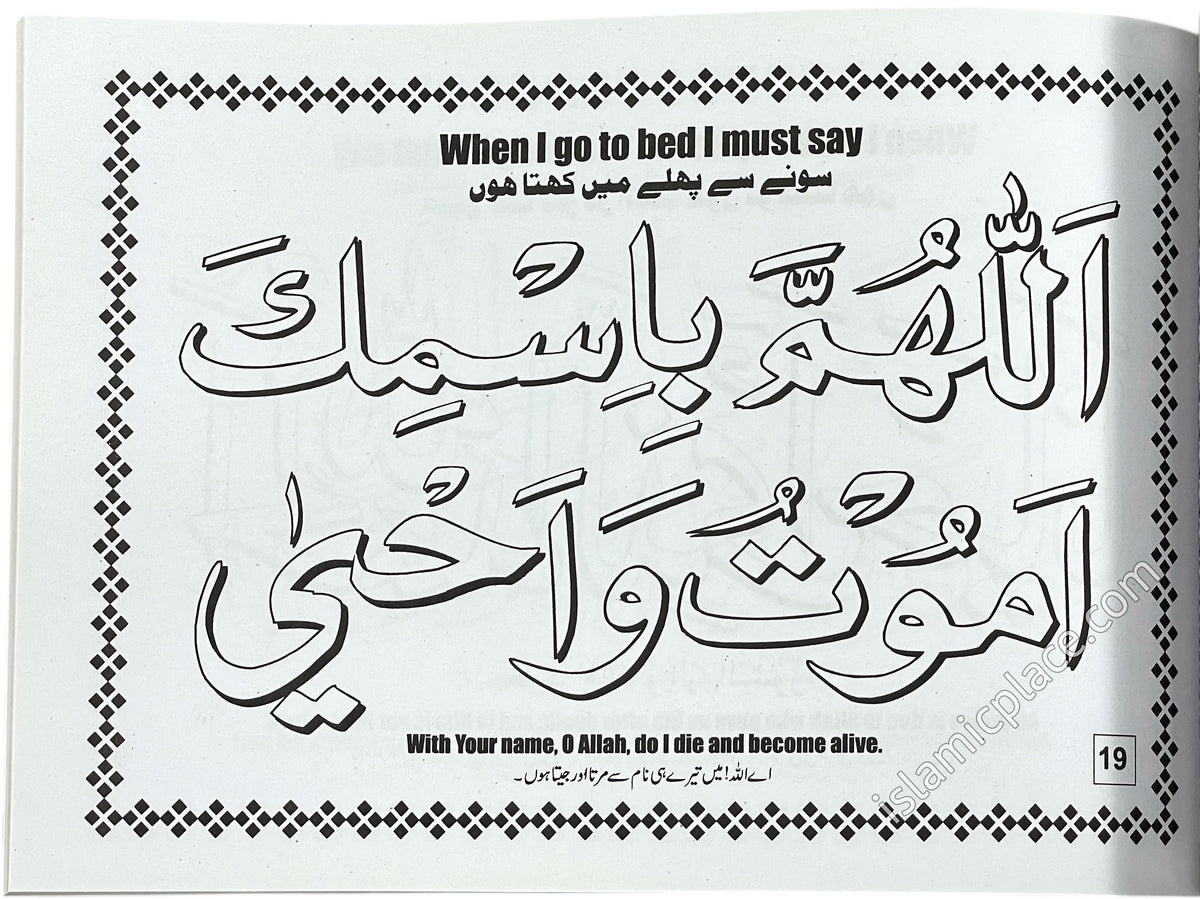 When I go to bed I must say
سونے سے پھلے میں کھتا ھوں
اَللّٰهُمَّ بِاِسْمِكَ
اَمُوْتُ وَاَحْيٰي
With Your name, O Allah, do I die and become alive.
اے اللہ! میں تیرے ہی نام سے مرتا اور جیتا ہوں۔
19
islamicplace.com